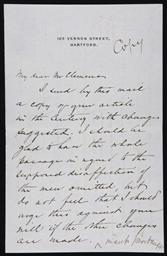 125 VERNON STREET,
HARTFORD.
Copy
My dear Mr Clemens
I send by this mail
a copy of your article
in the Century with changes
suggested, I should be
glad to have the whole
passage in regard to the
supposed disaffection of
the men omitted, but
do not feel that I should
urge this against your
will if the other changes
are made.